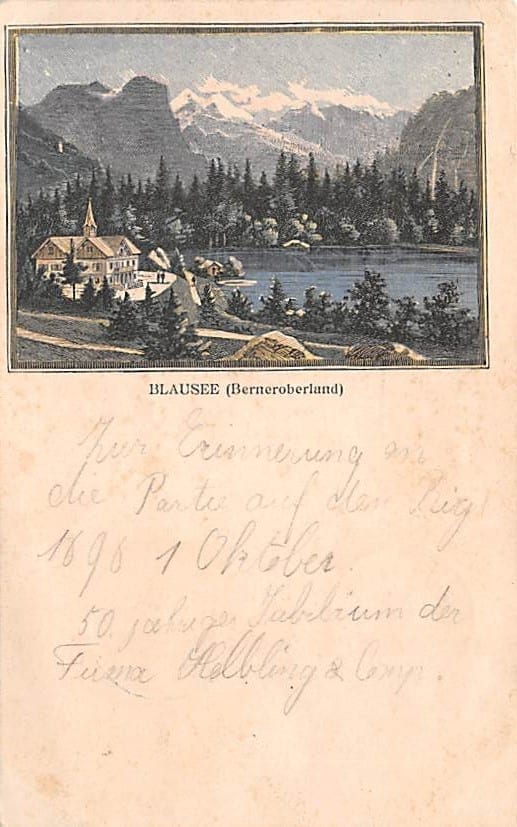 BLAUSEE (Berneroberland)
Zur Erinnerung an
die Partie auf den Rigi
1898 1 Oktober.
50. jähriges Jubiläum der
Firma Helbling & Comp.